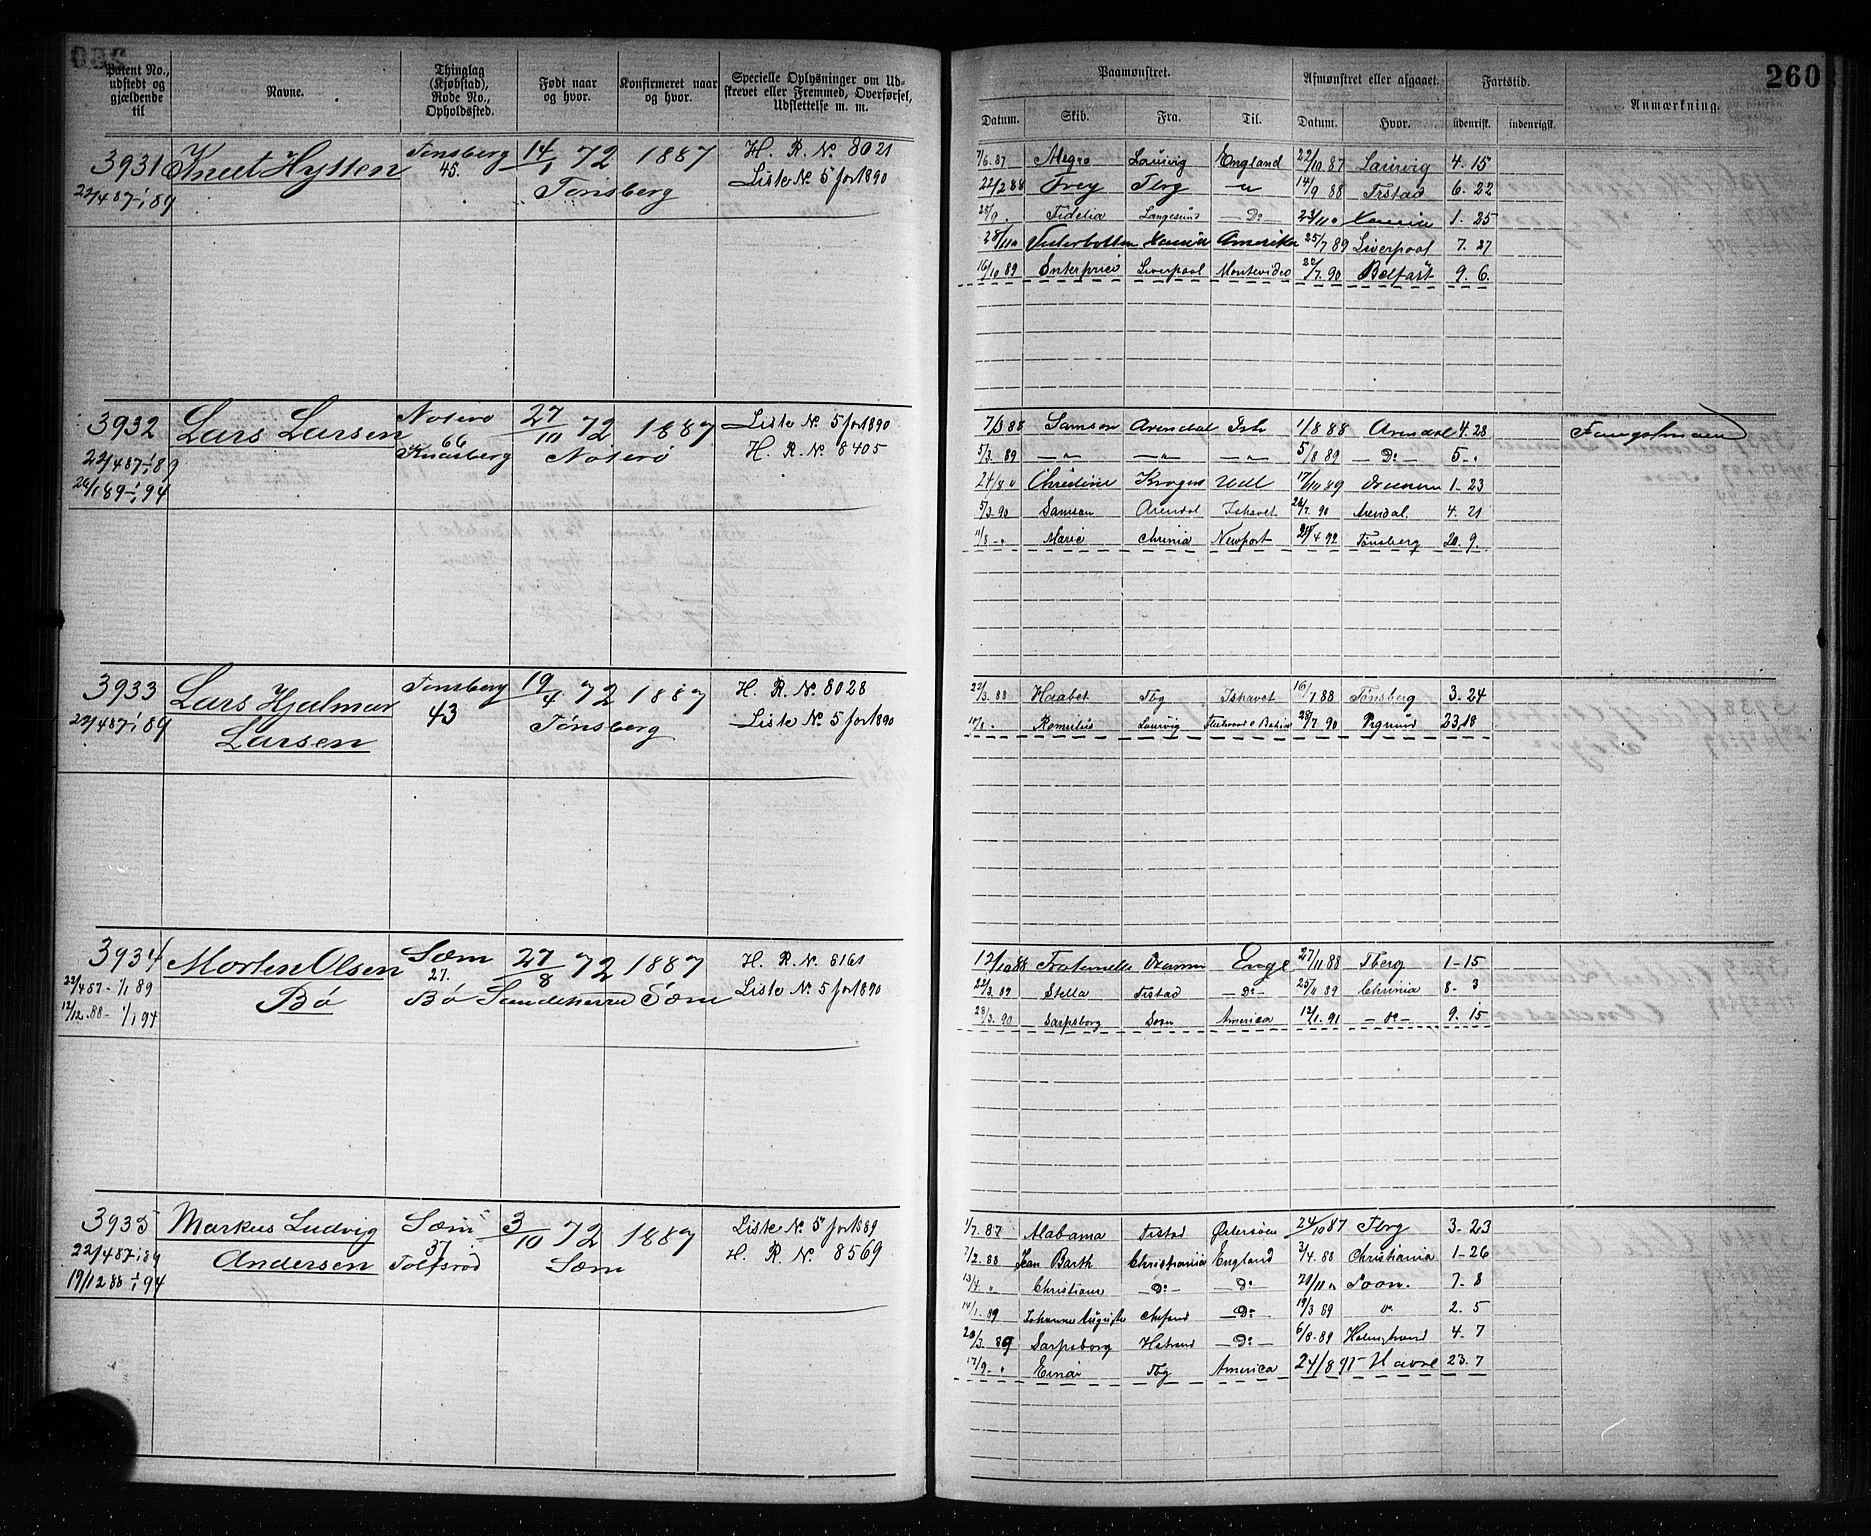 260
Patent No., udstedt og gjældende til
Navne.
Thinglag (Kjøbstad), Rode No., Opholdssted.
Født naar og hvor.
Konfirmeret naar og hvor.
Specielle Oplysninger om Udskrevet eller Fremmed, Overførsel, Udslettelse m. m.
Paamønstret.
Afmønstret eller afgaaet.
Fartstid.
Anmærkning.
Datum. Skib. Fra. Til. Datum. Hvor. udenrigsk. indenrigsk.
3931 Knut Hytten Tønsberg 14/1 72 1887 H. R. No. 8021
22/4 87-1/1 89 45. Tønsberg Liste No. 5 for 1890
7/6. 87 Alegro Laurvig England 22/10 87 Laurvig 4. 15
22/2 88 Frey Tbrg 14/9 88 Frstad 6. 22
Fidelia Langesund Do 23/11 1. 25
28/11 Vesterbotten Amerika 25/7 89 Liverpool 7. 27
16/10 89 Enterprise Liverpool Montevideo 7. 90 Belfast 9. 6.
3932 Lars Larsen Noterø 27/10 72 1887 Liste No. 5 for 1890
22/4 87-1/1 89 66 Knarberg Noterø H. R. No. 8405
1 89-1/1 94
7/3 88 Samson Arendal Ish 1/8 88 Arendal 4. 28 Fangstmand
5/3. 89 —„— —„— —„— 5/8 89 —Do— 5 - .
24/8 Christine Udl 17/10 89 1. 23
5/3. 90 Samson Arendal Ishavet 7. 90 Arendal. 4. 21
11/8 Marie Chrinia Newport 4 92 Tønsberg 20. 9.
3933 Lars Hjalmar Larsen Tønsberg 19/4 72 1887 H. R. No. 8028
22/4 87-1/1 89 43 Tønsberg Liste No. 5 for 1890
22/3. 88 Haabet Tbg Ishavet 16/7 88 Tønsberg 3. 24
17/8 Romulus Laurvig Fleetwood o Bahia 7. 90 23. 18
3934 Morten Olsen Sæm 27/8 72 1887 H. R. No. 8161
22/4 87-1/1 89 Bø 27. Bø Sandeherred Sæm Liste No. 5 for 1890
12/12. 88-1/1 94
12/10 88 Fraternitte Dramm Engl 27/11 88 Tberg 1-15
22/3. 89 Stella Frstad —Do— 25/11 89 Chrinia 8- 3
3. 90 Sarpsborg Soon America 12/1. 91 —do— 9. 15
3935 Markus Ludvig Andersen Sæm 3/10 72 1887 Liste No. 5 for 1889
22/4 87-1/1 89 37 Tolfsrød Sæm H. R. No. 8569
19/12 88-1/1 94
1/7. 87 Alabama Frstad Østersøen 24/10 87 Tbrg 3- 23
7/2. 88 Jean Barth Christiania England 3/4. 88 Christiania 1-26
13/4 „ Christiane —Do— —Do— 20/11 „ Soon. 7- 8
14/1. 89 Johanne Auguste —Do— 19/3 89 2. 5
20/3. 89 Sarpsborg Hstrand —Do— 6/8. 89 Holmestrand 4. 7
17/9 Einar Tbg America 24/8 91 Havre 23. 7